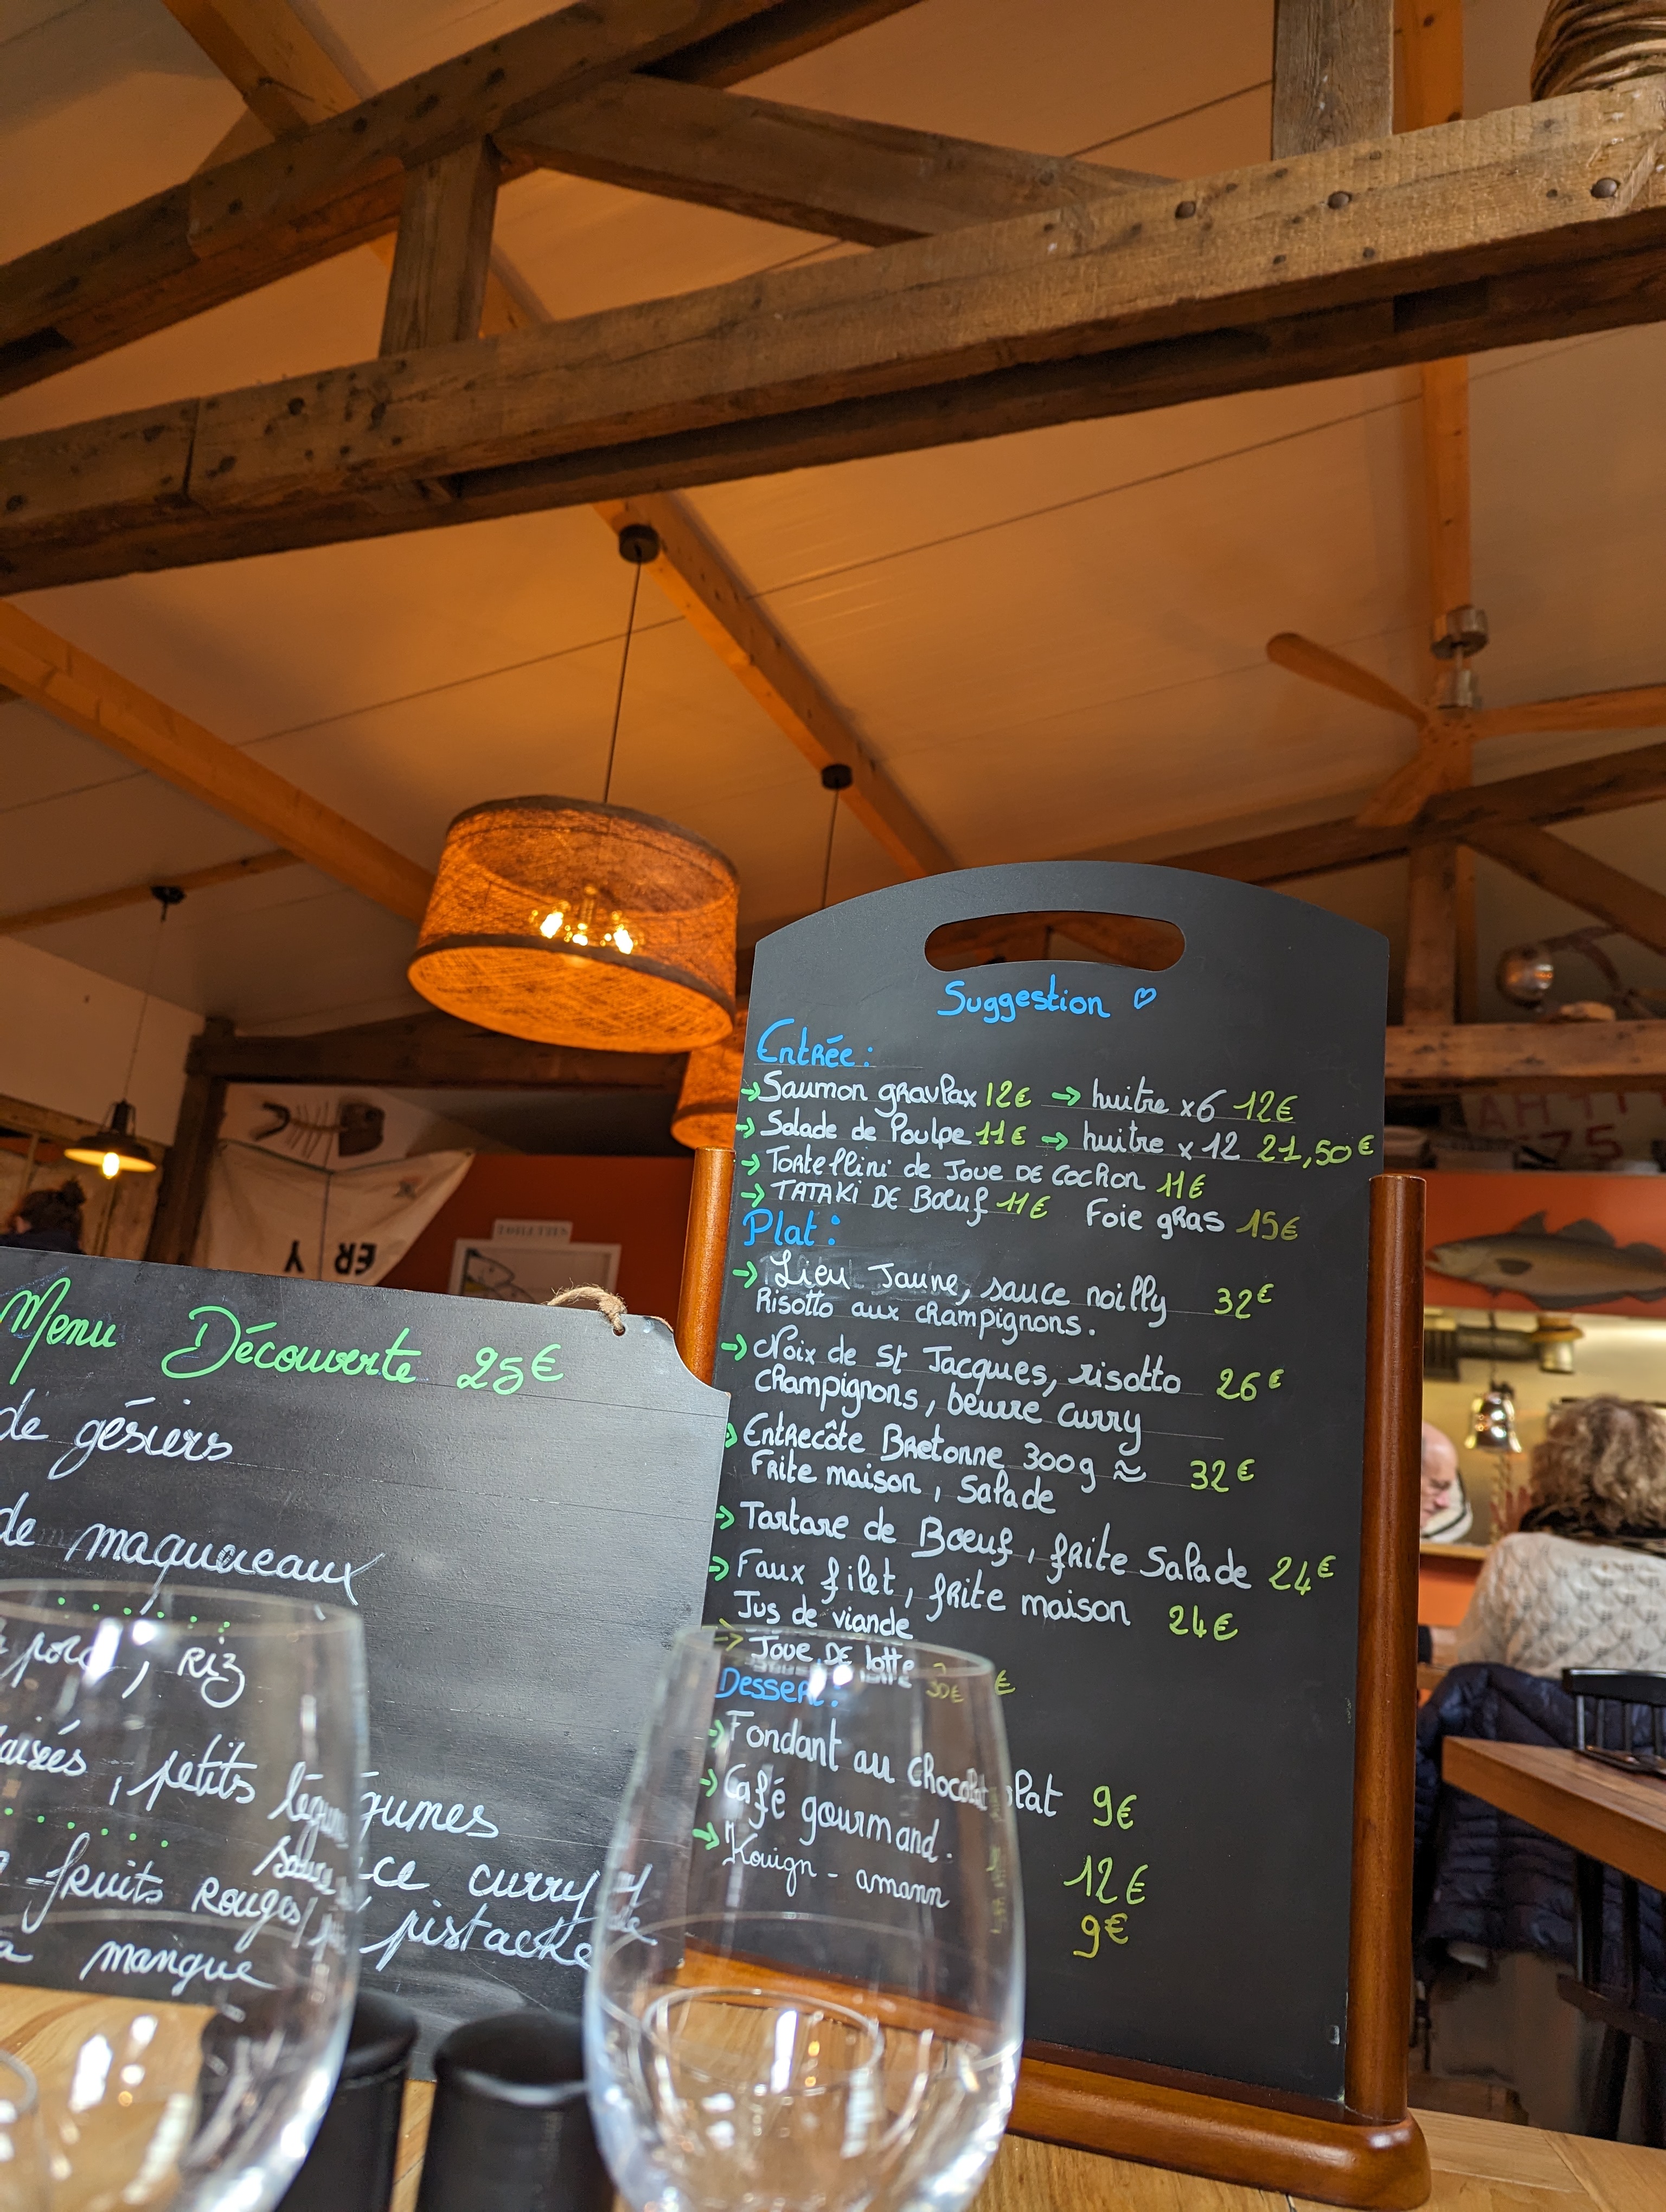 Suggestion
Entrée :
→ Saumon gravlax 12€ → huitre x6 12€
→ Salade de Poulpe 11€ → huitre x12 21,50€
→ Tortellini de Joue de cochon 11€
→ TATAKi DE Bœuf 11€ Foie gras 15€
Plat :
→ Lieu Jaune, sauce noilly 32€
Risotto aux champignons.
→ Noix de St Jacques, risotto 26€
champignons, beurre curry
→ Entrecôte Bretonne 300g ≈ 32€
Frite maison, Salade
→ Tartare de Bœuf, frite Salade 24€
→ Faux filet, frite maison 24€
Jus de viande
→ Joue DE lotte 30€
Dessert :
→ Fondant au chocolat 9€
→ Café gourmand. 12€
→ Kouign-amann 9€
Menu Découverte 25€
de gésiers
de maquereaux
porc, Riz
petits légumes
sauce curry
fruits Rouges/pistache
mangue